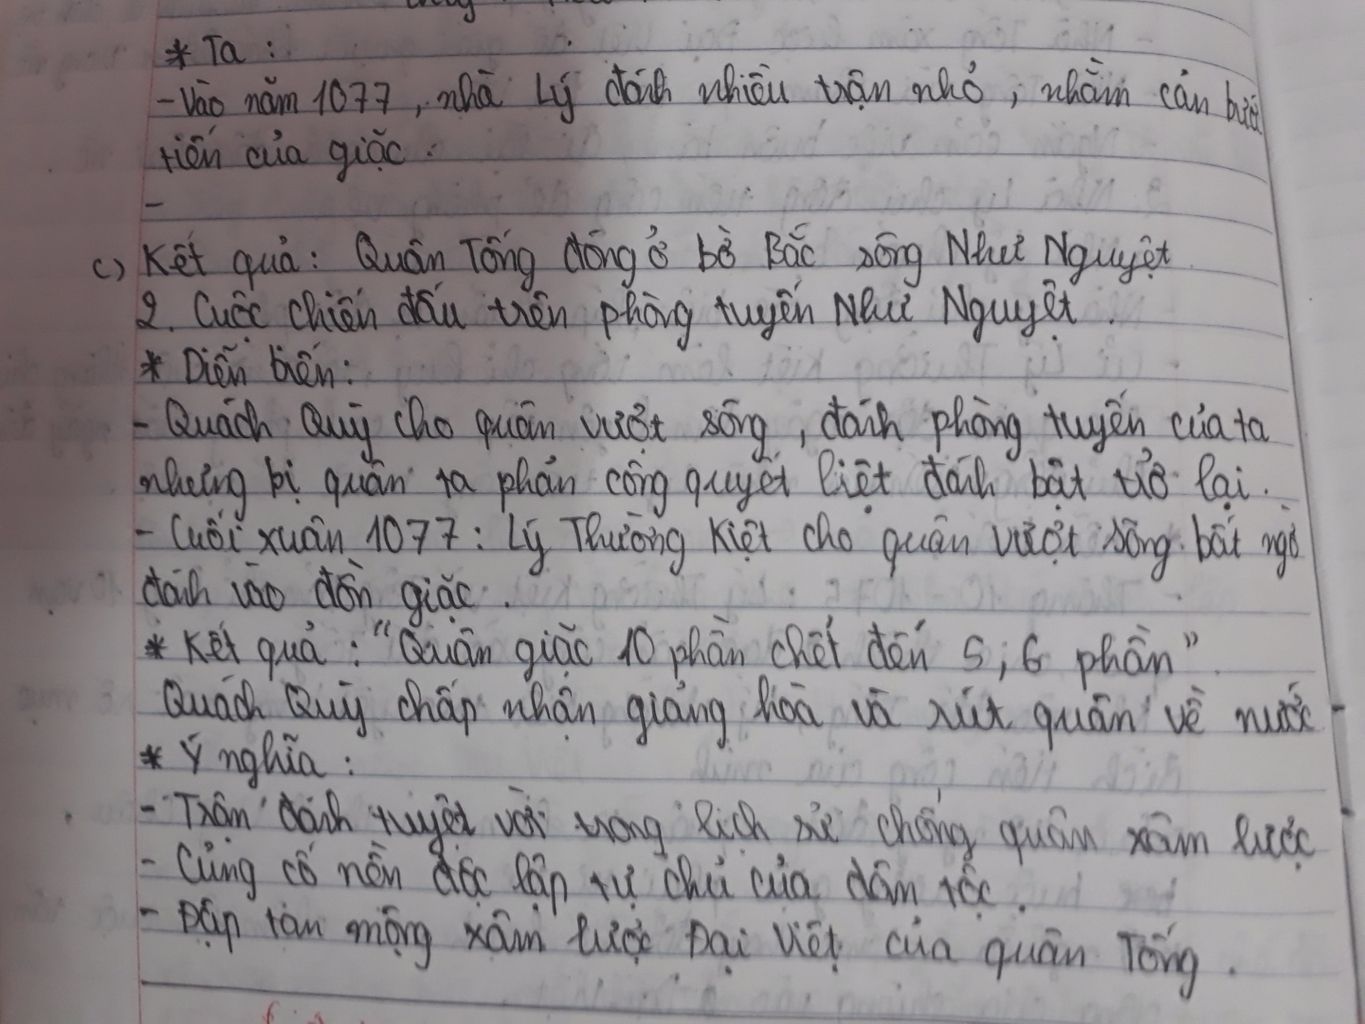 * Ta :
- Vào năm 1077, nhà Lý đánh nhiều trận nhỏ, nhằm cản bước
tiến của giặc.
-
c) Kết quả: Quân Tống đóng ở bờ Bắc sông Như Nguyệt
2. Cuộc chiến đấu trên phòng tuyến Như Nguyệt.
* Diễn biến:
- Quách Quỳ cho quân vượt sông, đánh phòng tuyến của ta
nhưng bị quân ta phản công quyết liệt đánh bật trở lại.
- Cuối xuân 1077: Lý Thường Kiệt cho quân vượt sông bất ngờ
đánh vào đồn giặc.
* Kết quả: "Quân giặc 10 phần chết đến 5, 6 phần".
Quách Quỳ chấp nhận giảng hoà và rút quân về nước
* Ý nghĩa:
- Trận đánh tuyệt vời trong lịch sử chống quân xâm lược
- Củng cố nền độc lập tự chủ của dân tộc.
- Đập tan mộng xâm lược Đại Việt của quân Tống.